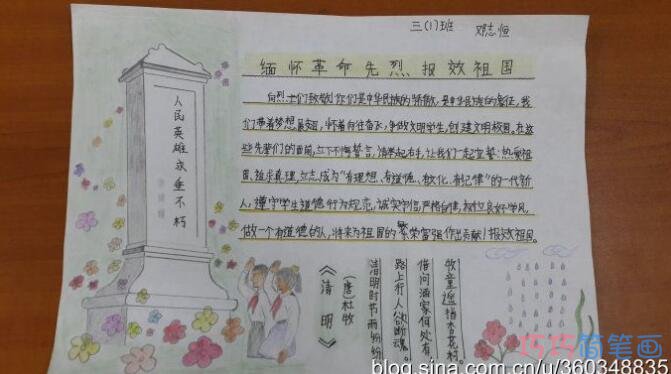 三(1)班 邓志恒
缅怀革命先烈、报效祖国
人民英雄永垂不朽
向烈士们致敬!你们是中华民族的骄傲,是中华民族的象征,我
们带着梦想 怀着向往奋飞,争做文明学生,创建文明校园。在这
些先辈们的面前,立下不悔誓言,请举起右手,让我们一起宣誓:热爱祖
国、追求真理,立志成为"有理想、有道德、有文化、有纪律"的一代新
人,遵守学生道德行为规范,诚实守信,严格自律,树立良好学风,
做一个有道德的人,将来为祖国的繁荣富强作出贡献!报效祖国。
《清明》
(唐)杜牧
清明时节雨纷纷
路上行人欲断魂。
借问酒家何处有,
牧童遥指杏花村。
巧巧简笔画
blog.sina.com.cn/u/360348835